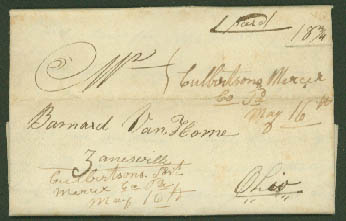 Paid
18¾
Mr
Culbertsons Mercer
Co Pa
May 16th
Barnard Van Horne
Zanesville
Culbertsons
Mercer Co Pa
May 16th
Ohio